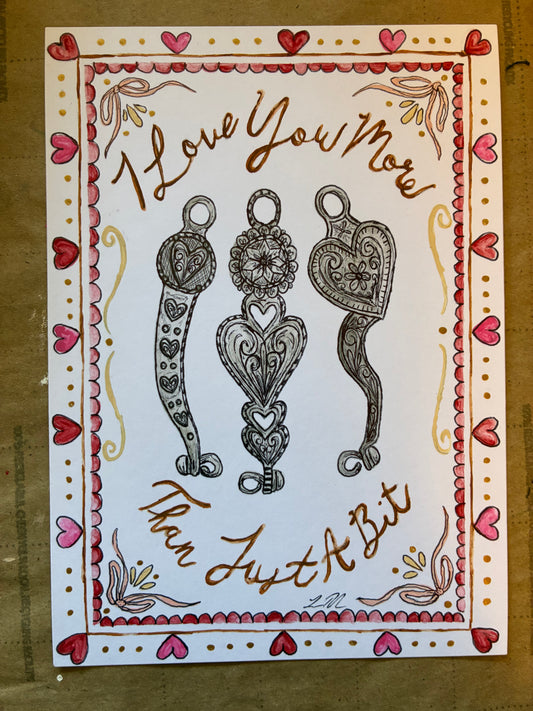 I Love You More
Than Just A Bit
LM